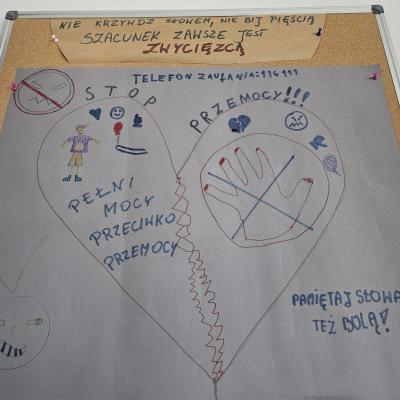 NIE KRZYWDŹ SŁOWEM, NIE BIJ PIĘŚCIĄ
SZACUNEK ZAWSZE JEST
ZWYCIĘZCĄ
TELEFON ZAUFANIA: 116 111
STOP
PRZEMOCY!!!
PEŁNI
MOCY
PRZECIWKO
PRZEMOCY
PAMIĘTAJ SŁOWA
TEŻ BOLĄ!